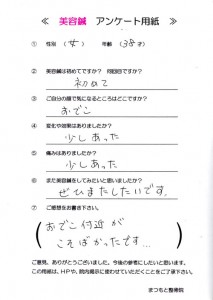 ≪ 美容鍼 アンケート用紙 ≫
① 性別 (女) 年齢 (38才)
② 美容鍼は初めてですか? 何回目ですか?
初めて
③ ご自分の顔で気になるところはどこですか?
おでこ
④ 変化や効果はありましたか?
少しあった
⑤ 痛みはありましたか?
少しあった
⑥ また美容鍼をしてみたいと思いましたか?
ぜひまたしたいです。
⑦ ご感想をお書き下さい。
(おでこ付近が
こそばかったです…)
ご意見、ありがとうございました。今後の参考にしたいと思います。
この用紙は、HPや、院内掲示に使わせていただくことをご了承下さい。
まつもと整骨院